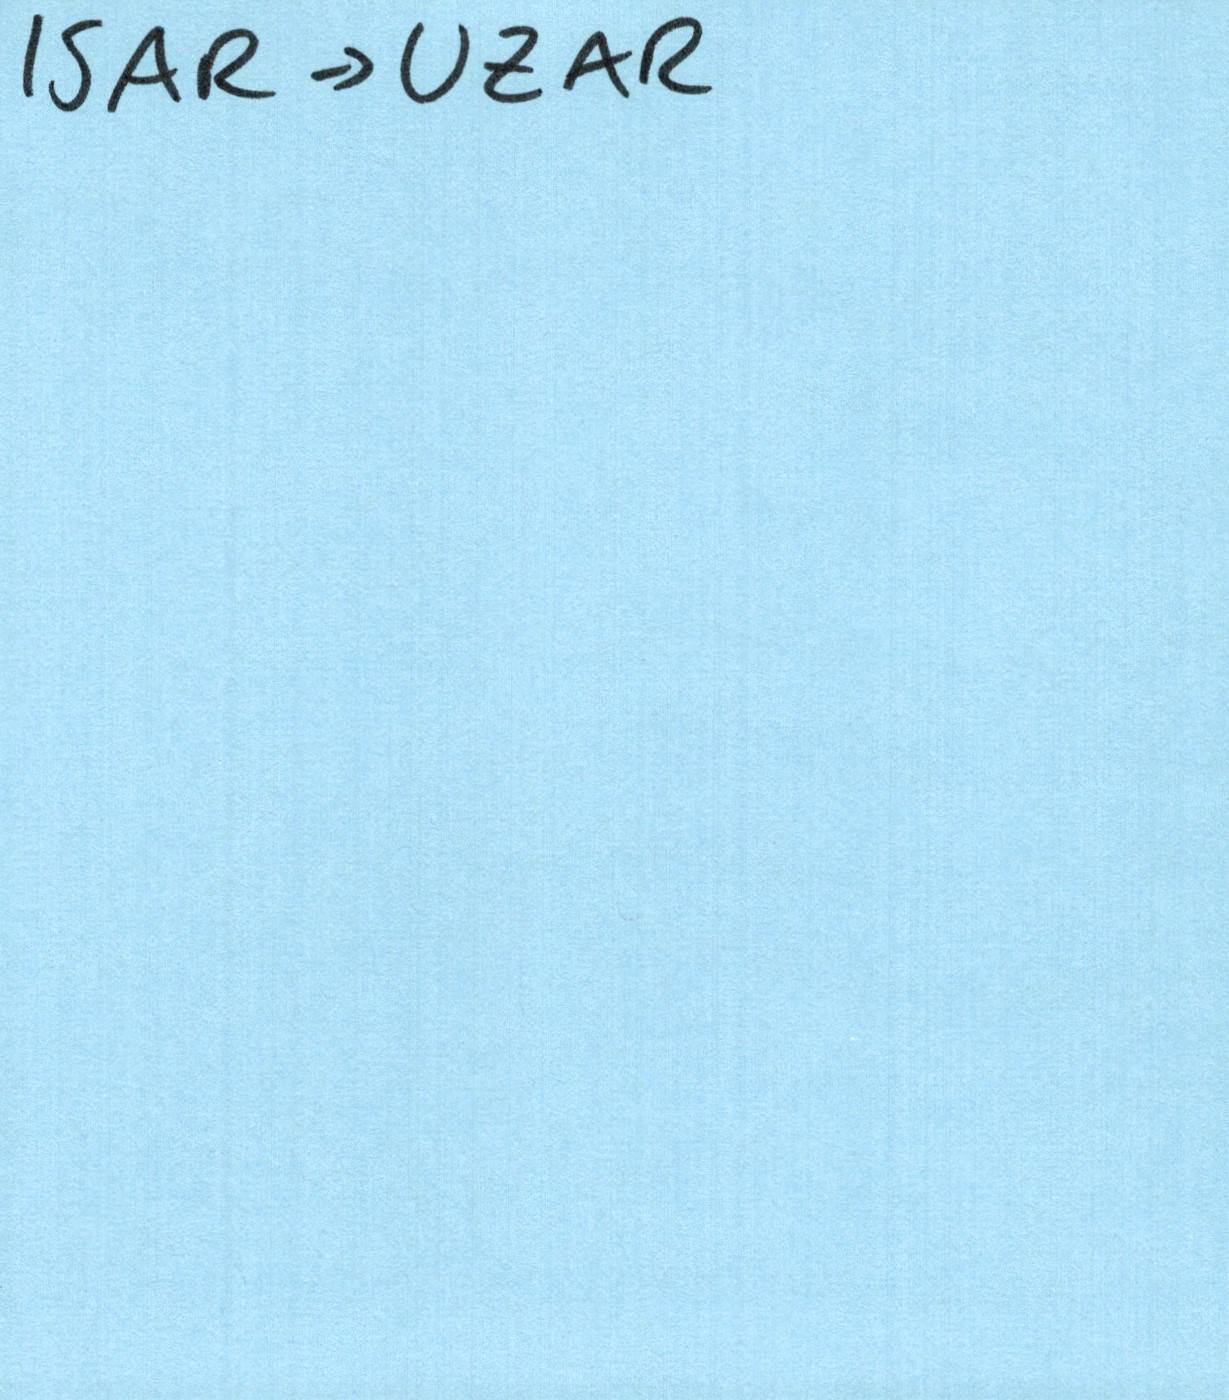 ISAR → UZAR